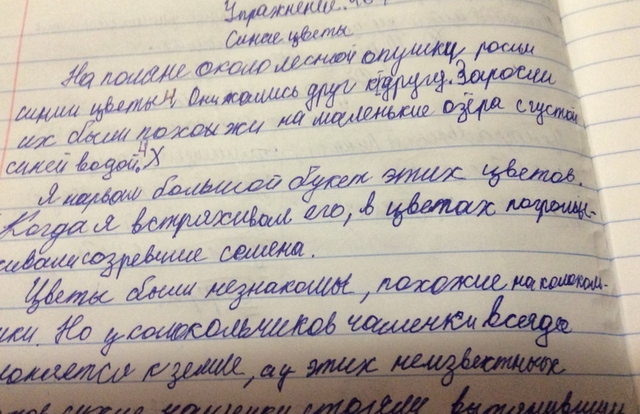 Упражнение.
Синие цветы
На поляне около лесной опушки росли
синии цветы 4. Они жались друг к другу. Заросли
их были похожи на маленькие озёра с густой
синей водой. 4 X
Я нарвал большой букет этих цветов.
Когда я встряхивал его, в цветах погромы-
хивали созревшие семена.
Цветы были незнакомые, похожие на колоколь-
чики. Но у колокольчиков чашечки всегда
клоняется к земле, а у этих неизвестных
сухие чашечки стояли вытянувшись